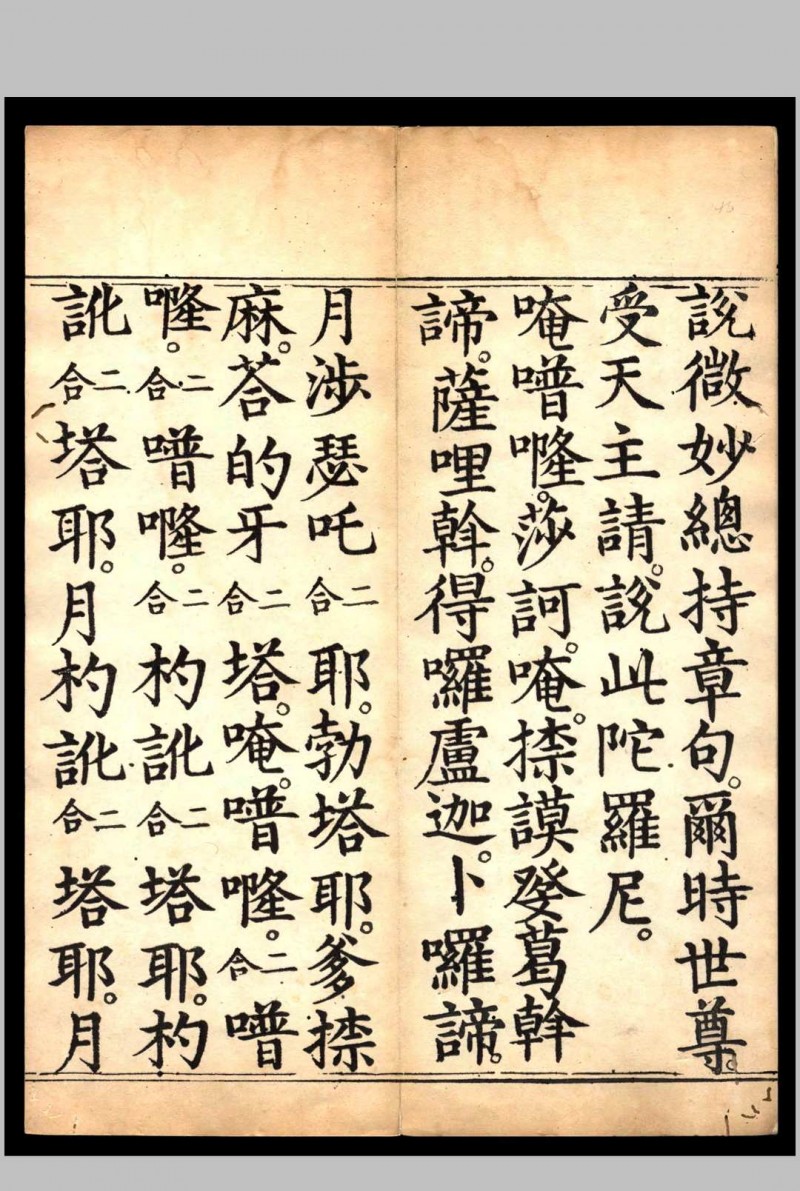 說微妙總持章句。爾時世尊。
受天主請。說此陀羅尼。
唵噆𠺁。莎訶。唵。捺謨癹葛斡
諦。薩哩斡。得囉盧迦。卜囉諦。
月涉瑟吒二合耶。勃塔耶。爹捺
麻。荅的牙二合塔。唵。噆𠺁。二合噆
𠺁。二合噆𠺁。二合杓訛二合塔耶。杓
訛二合塔耶。月杓訛二合塔耶。月